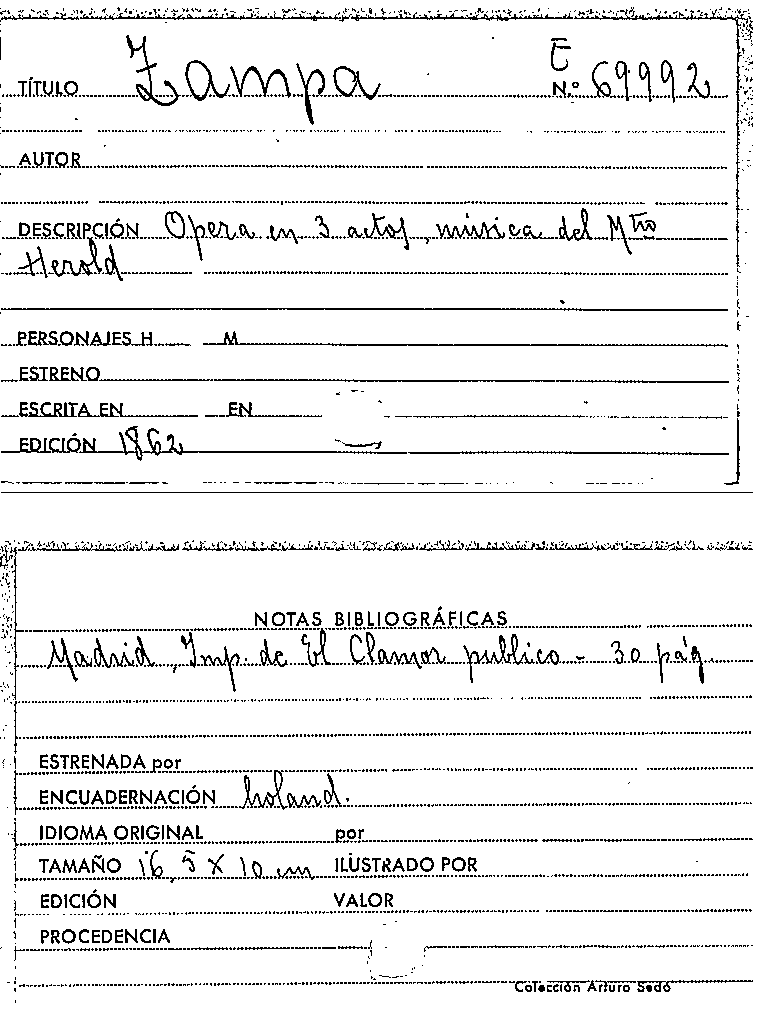 E
TÍTULO Zampa N.º 69992
AUTOR
DESCRIPCIÓN Opera en 3 actos, música del Mtro
Herold
PERSONAJES H M
ESTRENO
ESCRITA EN EN
EDICIÓN 1862
NOTAS BIBLIOGRÁFICAS
Madrid, Imp. de El Clamor publico - 30 pág.
ESTRENADA por
ENCUADERNACIÓN holand.
IDIOMA ORIGINAL por
TAMAÑO 16,5 X 10 cm ILUSTRADO POR
EDICIÓN VALOR
PROCEDENCIA
Colección Arturo Sedó